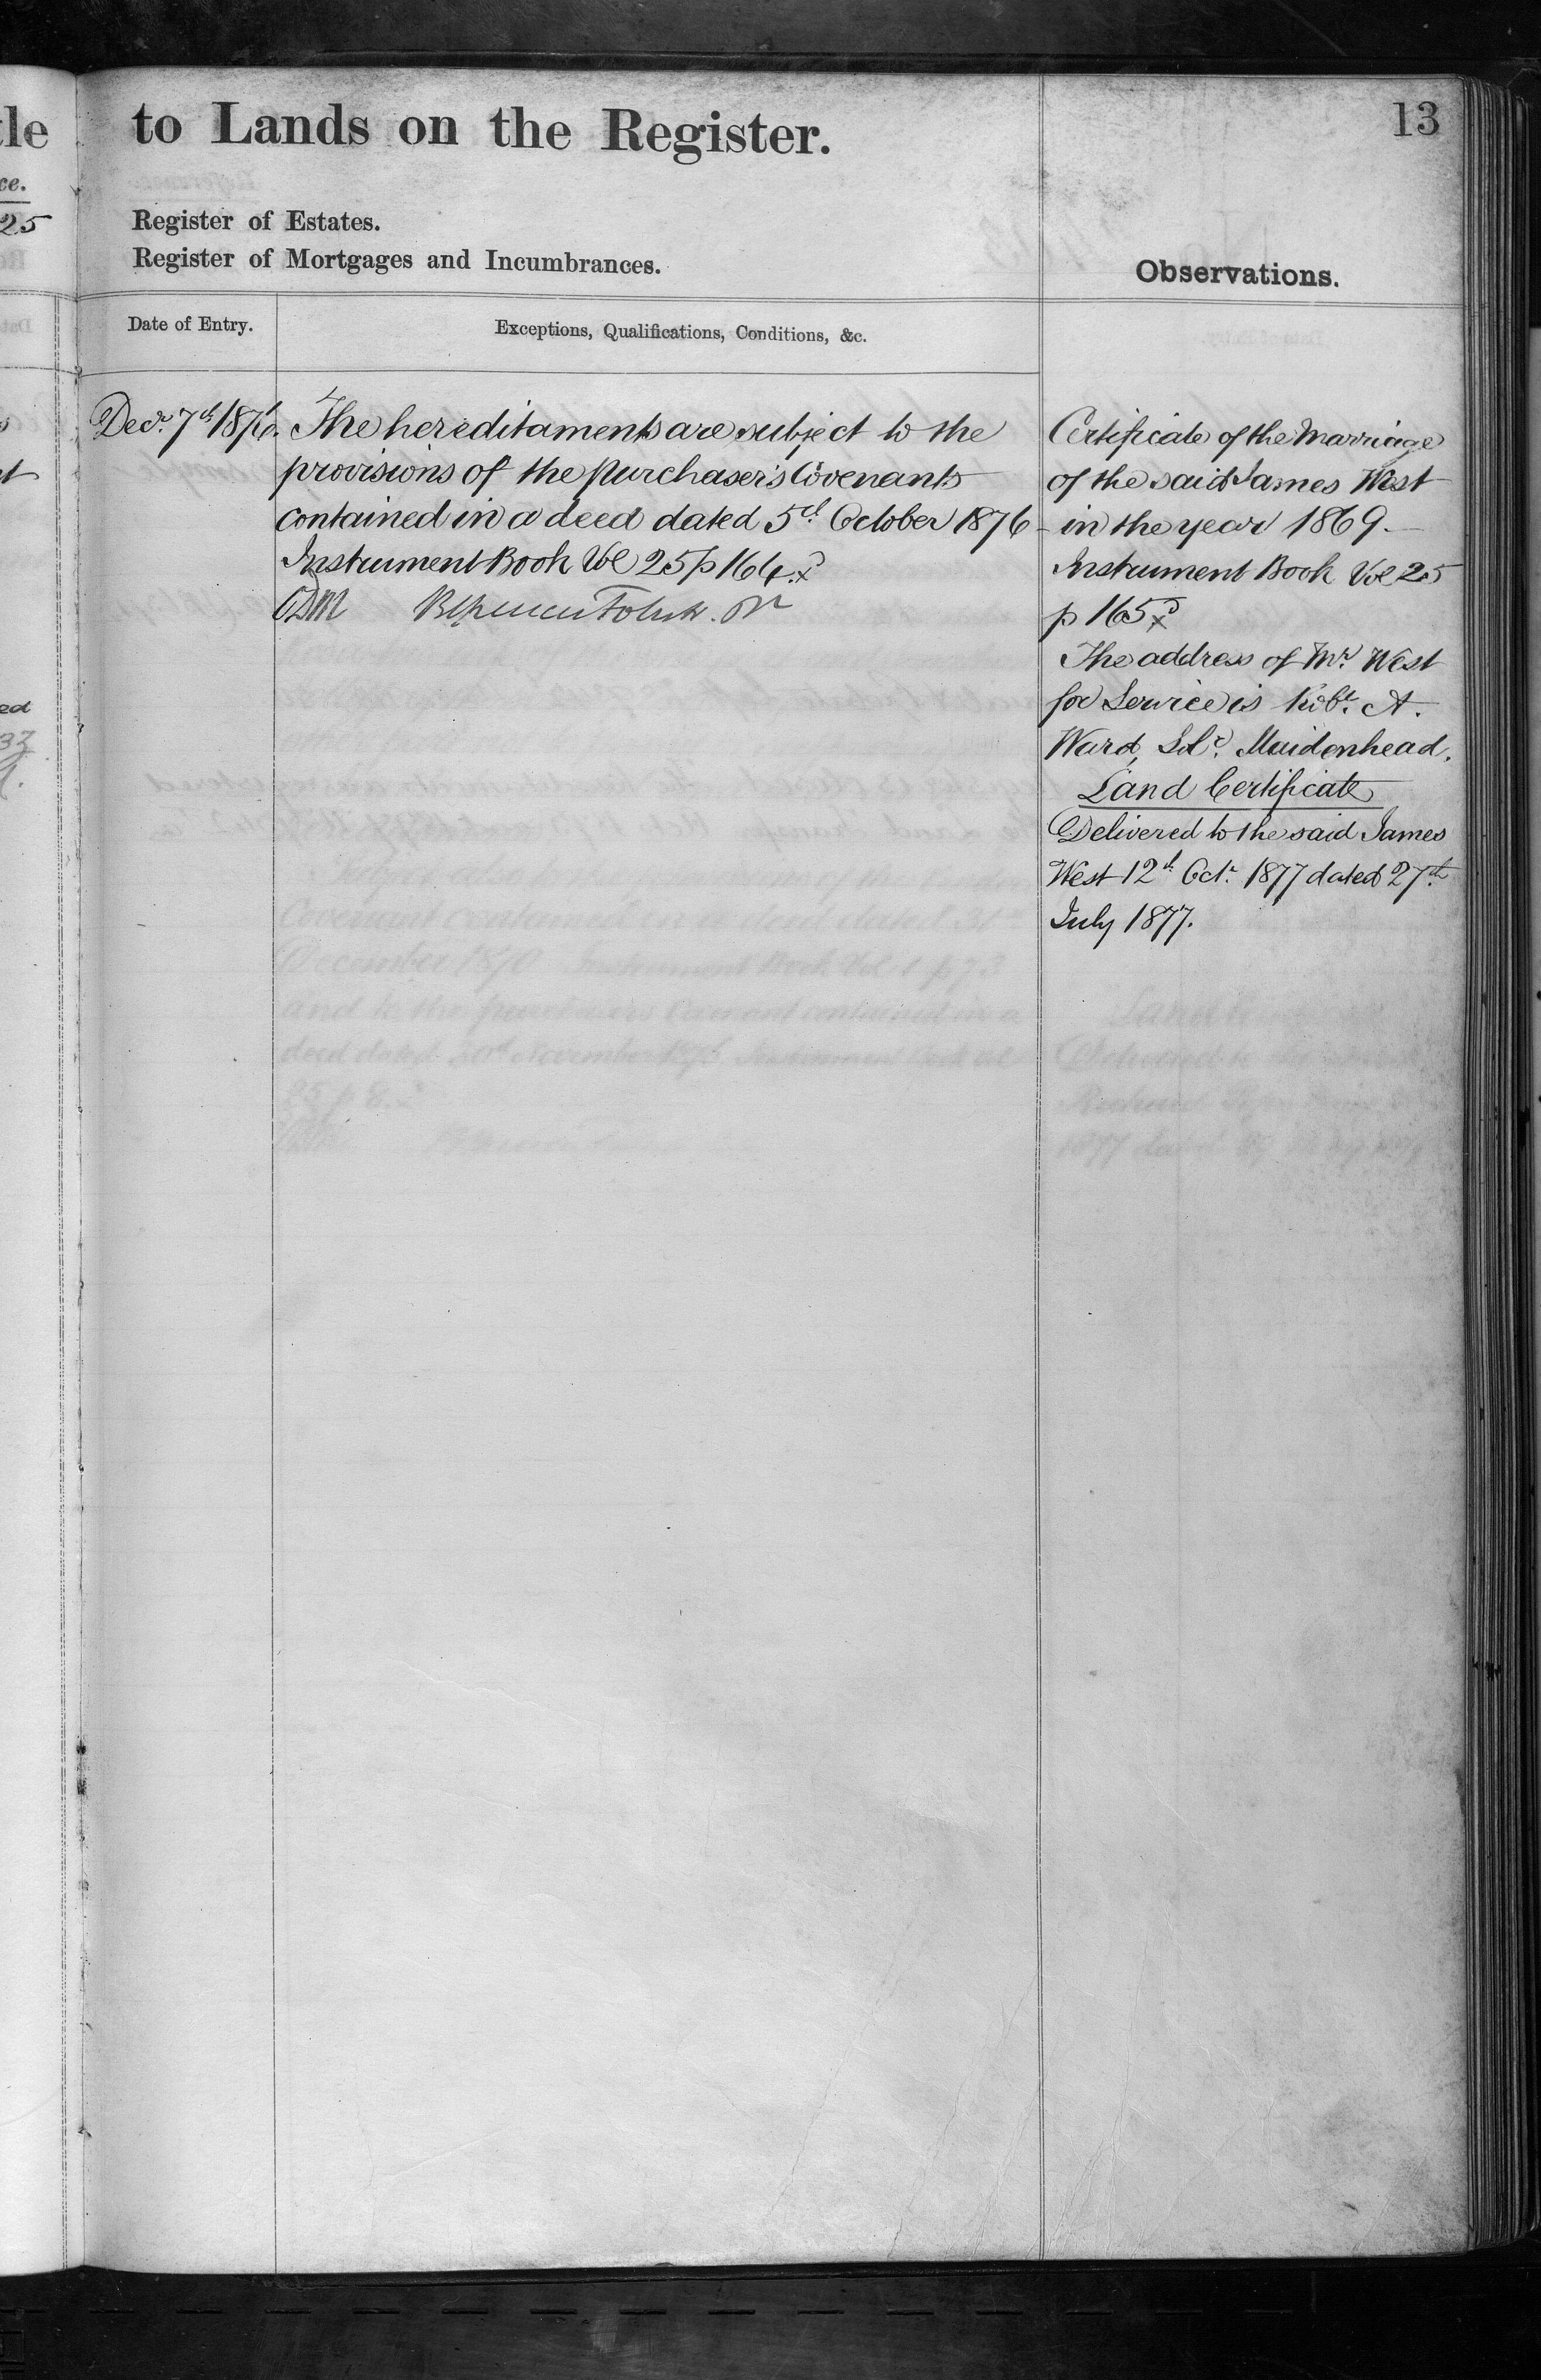 to Lands on the Register.
13
Register of Estates.
Register of Mortgages and Incumbrances.
Observations.
Date of Entry.
Exceptions, Qualifications, Conditions, &c.
Decr. 7th 1876.
The hereditaments are subject to the
provisions of the purchaser's Covenants
contained in a deed dated 5th October 1876
Instrument Book Vol 25 p 164
Certificate of the Marriage
of the said James West
in the year 1869.
Instrument Book Vol 25
p 165
The address of Mr. West
for Service is Robt. A.
Ward, Solr. Maidenhead.
Land Certificate
Delivered to the said James
West 12th Octr. 1877 dated 27th
July 1877.